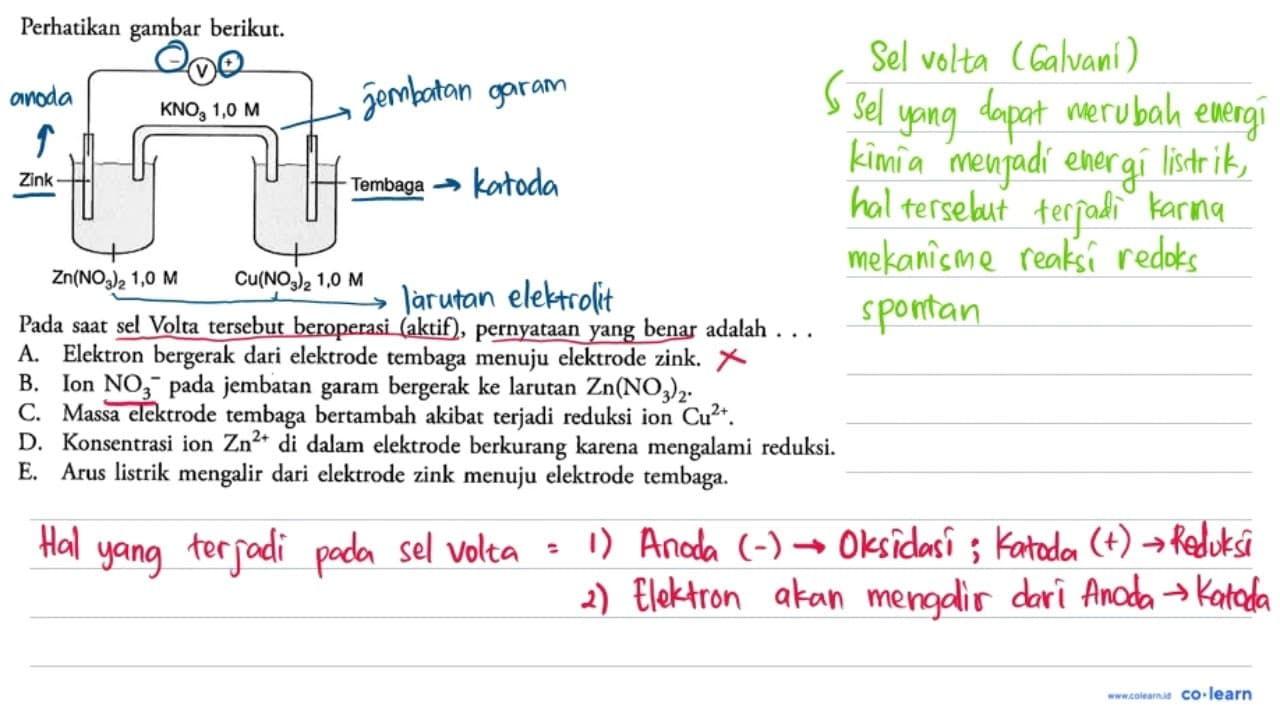 Perhatikan gambar berikut.
- V +
anoda
KNO₃ 1,0 M
jembatan garam
Zink
Tembaga → katoda
Zn(NO₃)₂ 1,0 M
Cu(NO₃)₂ 1,0 M
larutan elektrolit
Sel volta (Galvani)
Sel yang dapat merubah energi
kimia menjadi energi listrik,
hal tersebut terjadi karna
mekanisme reaksi redoks
spontan
Pada saat sel Volta tersebut beroperasi (aktif), pernyataan yang benar adalah . . .
A. Elektron bergerak dari elektrode tembaga menuju elektrode zink. ×
B. Ion NO₃⁻ pada jembatan garam bergerak ke larutan Zn(NO₃)₂.
C. Massa elektrode tembaga bertambah akibat terjadi reduksi ion Cu²⁺.
D. Konsentrasi ion Zn²⁺ di dalam elektrode berkurang karena mengalami reduksi.
E. Arus listrik mengalir dari elektrode zink menuju elektrode tembaga.
Hal yang terjadi pada sel volta = 1) Anoda (-) → Oksidasi ; Katoda (+) → Reduksi
2) Elektron akan mengalir dari Anoda → Katoda
www.colearn.id co·learn